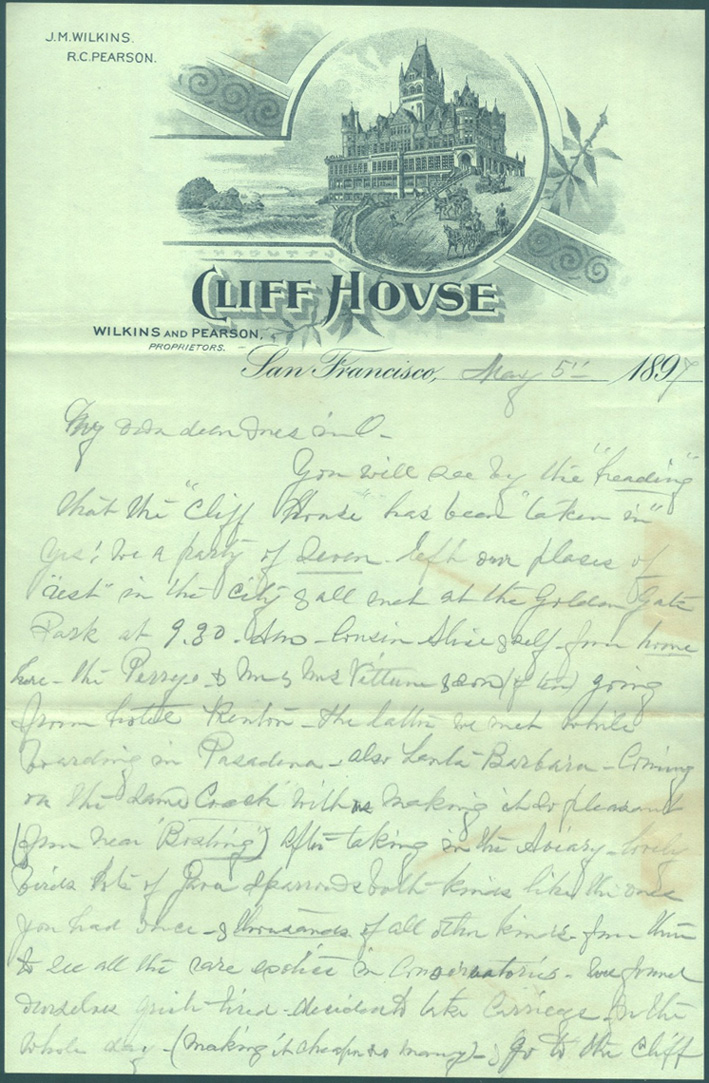 J.M.WILKINS.
R.C.PEARSON.
CLIFF HOVSE
WILKINS AND PEARSON,
PROPRIETORS.
San Francisco, May 5" 1897
My own dear Ones &
You will see by the "heading"
that the "Cliff House" has been "taken in"
Yes! We a party of Seven left our places of
"rest" in the City & all met at the Golden Gate
Park at 9.30. Cousin Alice & self from home
here - the Perrys & Mr & Mrs & son (of ten) going
from hotel - the latter we met while
boarding in Pasadena - also Santa Barbara - Coming
on the same Coach with us making it so pleasant
(from near ) After taking in the Aviary - lovely
birds lots of Java Sparrows both kinds like the ones
you had once - & thousands of all other kinds - from there
to see all the rare exotics in Conservatories - we found
ourselves quite tired - decided to take Carriage for the
whole day - (making it cheaper so many) - & go to the Cliff